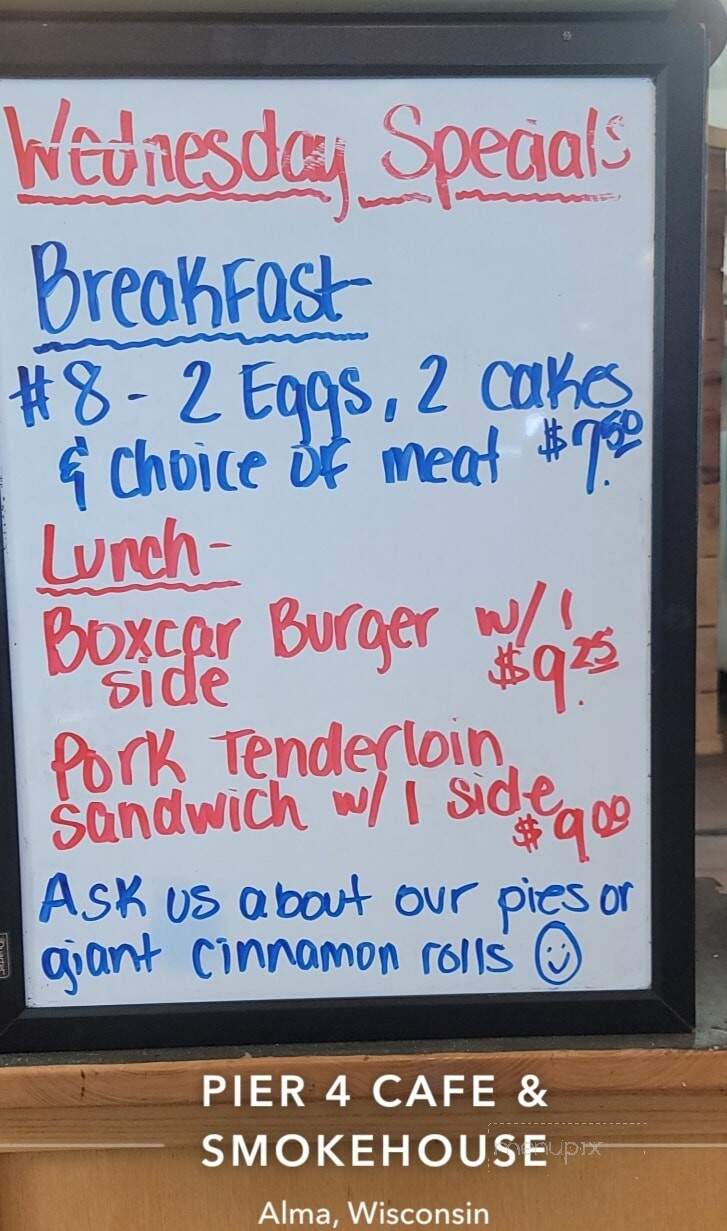 Wednesday Specials
Breakfast
#8 - 2 Eggs, 2 cakes
& choice of meat $7.50
Lunch-
Boxcar Burger w/ 1
side $9.25
Pork Tenderloin
sandwich w/ 1 side
$9.00
Ask us about our pies or
giant cinnamon rolls
PIER 4 CAFE &
SMOKEHOUSE
menupix
Alma, Wisconsin